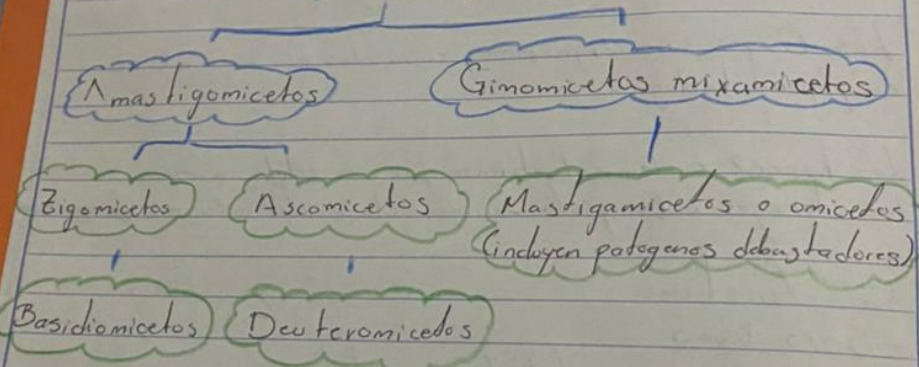 Amastigomicetos
Gimomicetos mixamicetos
Zigomicetos
Ascomicetos
Mastigamicetos o omicetos
(incluyen patogenos debastadores)
Basidiomicetos
Deuteromicedos